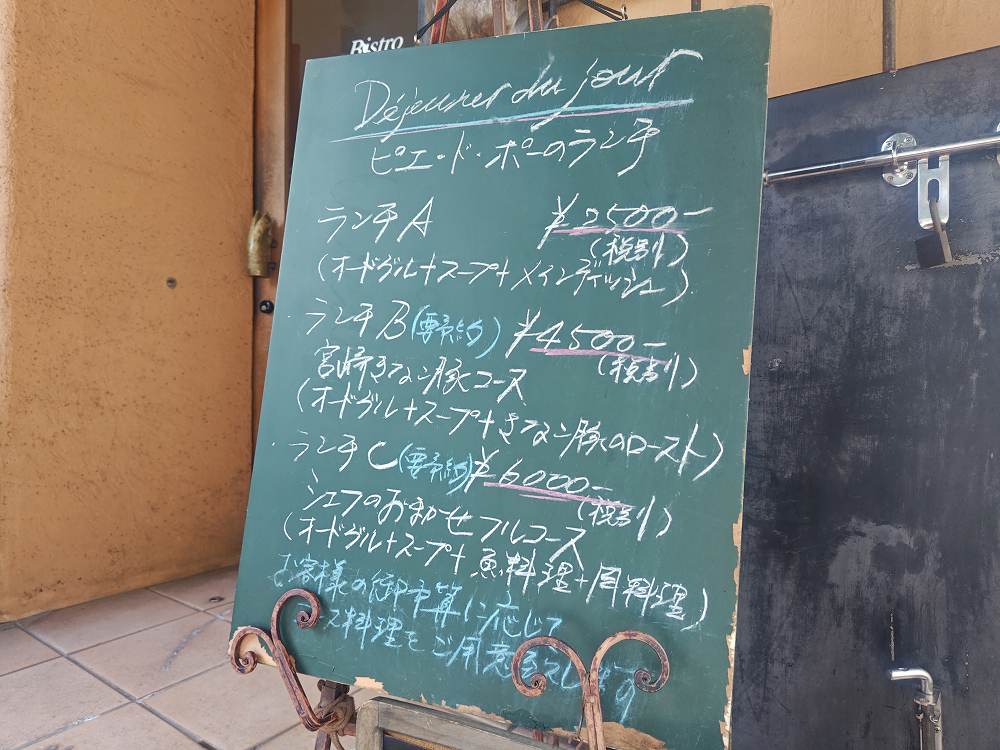 Bistro
Déjeuner du jour
ピエ・ド・ポーのランチ
ランチA ¥2500-
(税別)
(オードヴル+スープ+メインディッシュ)
・ランチB(要予約) ¥4500-
(税別)
宮崎きなこ豚コース
(オードヴル+スープ+きなこ豚のロースト)
・ランチC(要予約) ¥6000-
(税別)
シェフのおまかせフルコース
(オードヴル+スープ+魚料理+肉料理)
お客様の御予算に応じて
ース料理をご用意致します